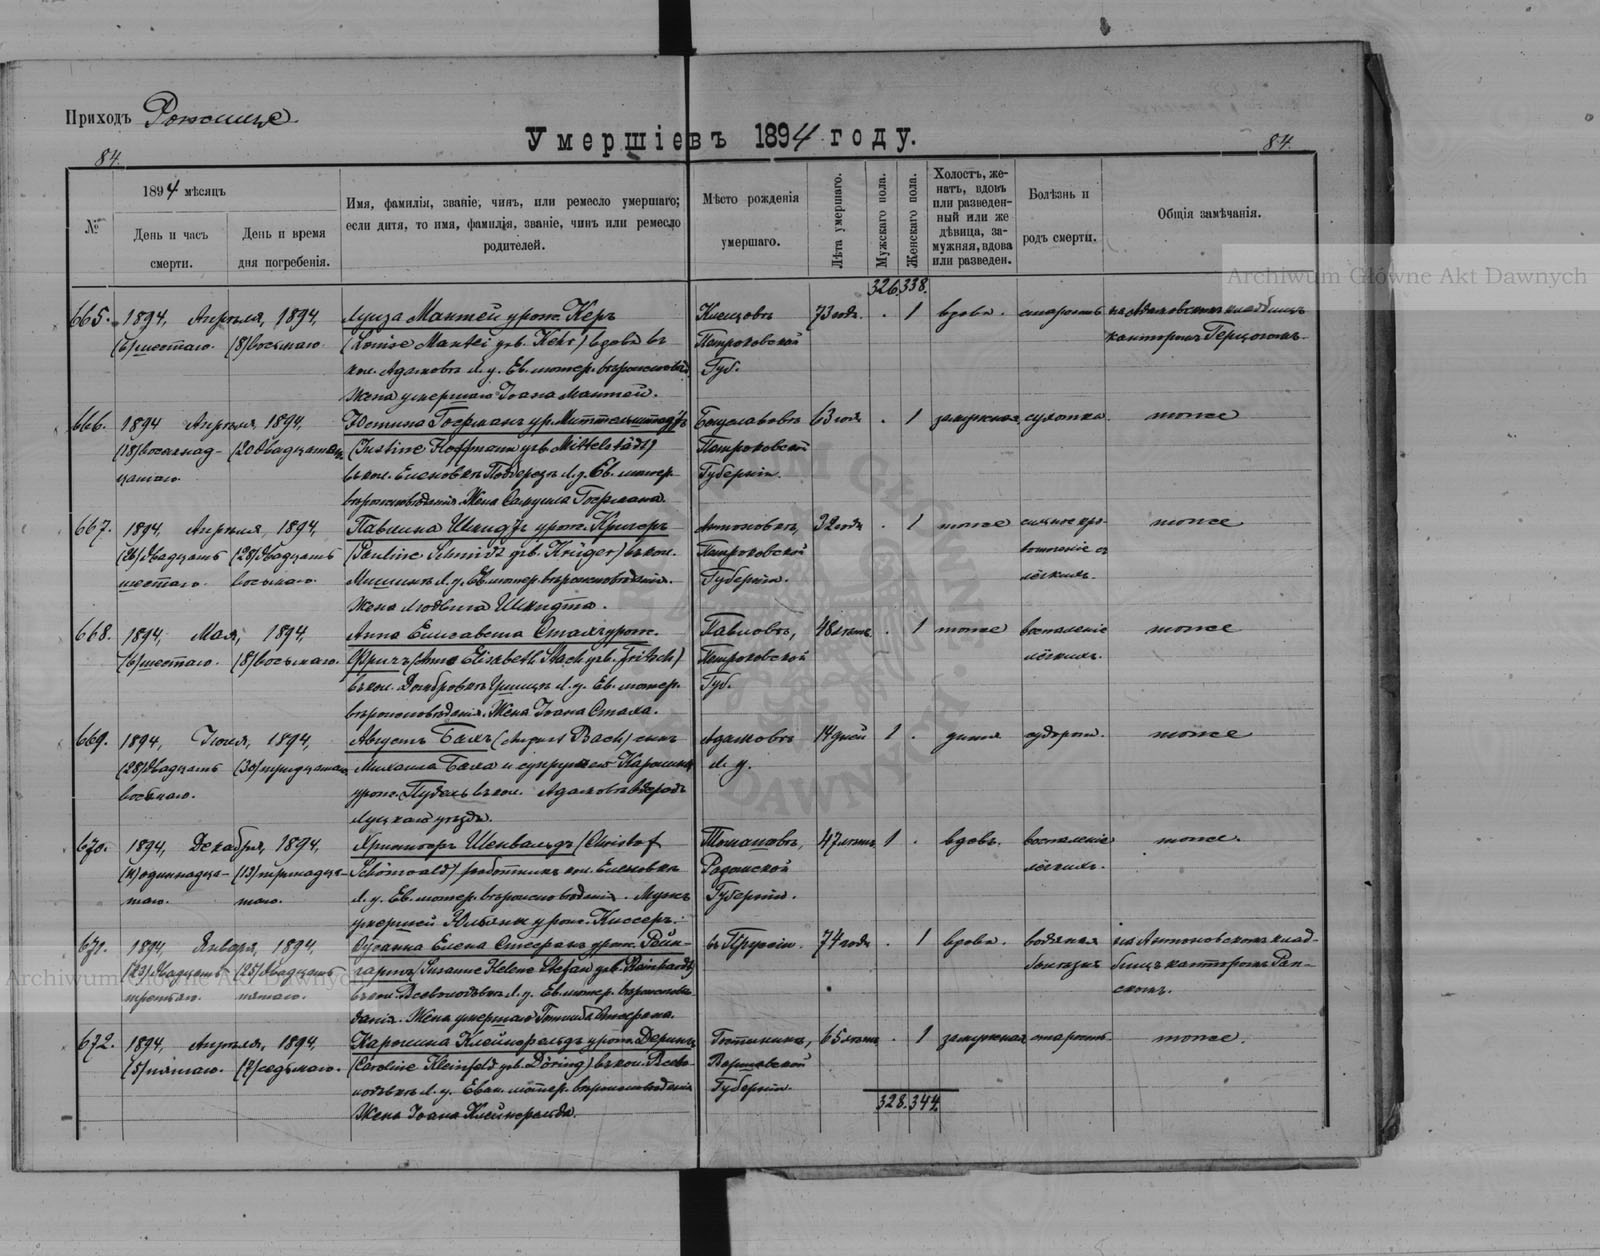 Приходъ Рожище
Умершіевъ 1894 году.
84.
84.
№
1894 мѣсяцъ
День и часъ смерти.
День и время дня погребенія.
Имя, фамилія, званіе, чинъ, или ремесло умершаго;
если дитя, то имя, фамилія, званіе, чинъ или ремесло
родителей.
Мѣсто рожденія
умершаго.
Лѣта умершаго.
Мужскаго пола.
Женскаго пола.
Холостъ, же-
натъ, вдовъ
или разведен-
ный или же
дѣвица, за-
мужняя, вдова
или разведен.
Болѣзнь и
родъ смерти.
Общія замѣчанія.
326. 338.
665. 1894, Апрѣля, 1894, Луиза Мантей урож. Керъ Клещовъ 73 года . 1 вдова. старость на Адамовскомъ кладбищѣ
(6) шестаго. (8) восьмаго (Louise Mantei geb. Kehr) вдова въ Петроковской канторомъ Герцогомъ.
кол. Адамовъ Л. у. Ев. лютер. вѣроисповѣд. Губ.
Жена умершаго Іоана Мантей.
666. 1894 Апрѣля, 1894, Юстина Гофманъ ур. Миттельштедтъ Богуславовъ 63 года . 1 замужняя сухотка тоже
(18) восемнад- (20) двадцатаго (Justine Hoffmann geb. Mittelstädt) Петроковской
цатаго. въ кол. Еленовкѣ Л. у. Ев. лютер. Губерніи.
вѣроисповѣданія. Жена Самуила Гофмана.
667. 1894, Апрѣля, 1894, Павлина Шмидтъ урож. Кригеръ Антоновка, 32 года . 1 тоже тоже
(26) двадцать (28) двадцать (Pauline Schmidt geb. Krüger) въ кол. Петроковской
шестаго. восьмаго. Л. у. Ев. лютер. вѣроисповѣданія. Губерніи. лёгкихъ.
Жена Людвига Шмидта.
668. 1894, Мая, 1894, Анна Елисавета Стахъ урож. Павловъ, 48 лѣтъ . 1 тоже воспаленіе тоже
(6) шестаго. (8) восьмаго. Фричъ (Anna Elisabeth Stach geb. Fritsch) Петроковской лёгкихъ.
въ кол. Домбровкѣ Л. у. Ев. лютер. Губ.
вѣроисповѣданія. Жена Іоана Стаха.
669. 1894, Іюня, 1894, Августъ Бахъ (August Bach) сынъ Адамовъ 14 дней 1 . дитя судороги. тоже
(28) двадцать (30) тридцатаго Михаила Баха и супруги его Каролины Л. у.
восьмаго. урож. въ кол. Адамовъ
Луцкаго уѣзда.
670. 1894, Декабря, 1894, Христофъ Шенвальдъ (Christof Томашовъ, 47 лѣтъ 1 . вдовъ. воспаленіе тоже.
(11) одиннадца- (13) тринадца- Schönwald) работникъ кол. Еленовкѣ Радомской лёгкихъ.
таго. таго. Л. у. Ев. лютер. вѣроисповѣданія. Мужъ Губерніи.
умершей Юльяны урож. Киссеръ.
671. 1894, Января, 1894, Сузанна Елена Стефанъ урож. Рейн- въ Пруссіи. 74 года . 1 вдова. водяная на Антоновскомъ клад-
(23) двадцать (25) двадцать гартъ (Susanne Helene Stefan geb. Reinhardt) болѣзнь бищѣ канторомъ Рап-
третьяго. пятаго. въ кол. Всеволодовкѣ Л. у. Ев. лютер. вѣроисповѣ- скомъ.
данія. Жена умершаго Готлиба Стефана.
672. 1894, Апрѣля, 1894, Каролина Клейнфельдъ урож. Дерингъ Гостининъ, 65 лѣтъ . 1 замужняя старость. тоже.
(5) пятаго. (7) седьмаго. (Caroline Kleinfeld geb. Döring) въ кол. Всево- Варшавской
лодовкѣ Л. у. Еван. лютер. вѣроисповѣданія Губерніи.
Жена Іоана Клейнфельда.
328. 344.
Archiwum Główne Akt Dawnych
Archiwum Główne Akt Dawnych